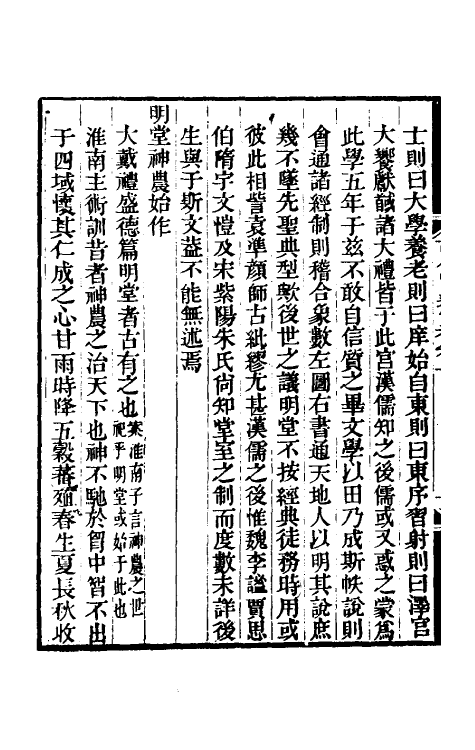 士則曰大學養老則曰庠始自東則曰東序習射則曰澤宮
大饗獻馘諸大禮皆于此宮漢儒知之後儒或又惑之蒙爲
此學五年于兹不敢自信質之畢文學以田乃成斯帙說則
會通諸經制則稽合象數左圖右書通天地人以明其說庶
幾不墜先聖典型歟後世之議明堂不按經典徒務時用或
彼此相訾袁準顔師古紕繆尤甚漢儒之後惟魏李謐賈思
伯隋宇文愷及宋紫陽朱氏尚知堂室之制而度數未詳後
生與于斯文葢不能無述焉
明堂神農始作
大戴禮盛德篇明堂者古有之也案淮南子言神農之世
祀乎明堂或始于此也
淮南主術訓昔者神農之治天下也神不馳於胷中智不出
于四域懷其仁成之心甘雨時降五穀蕃殖春生夏長秋收